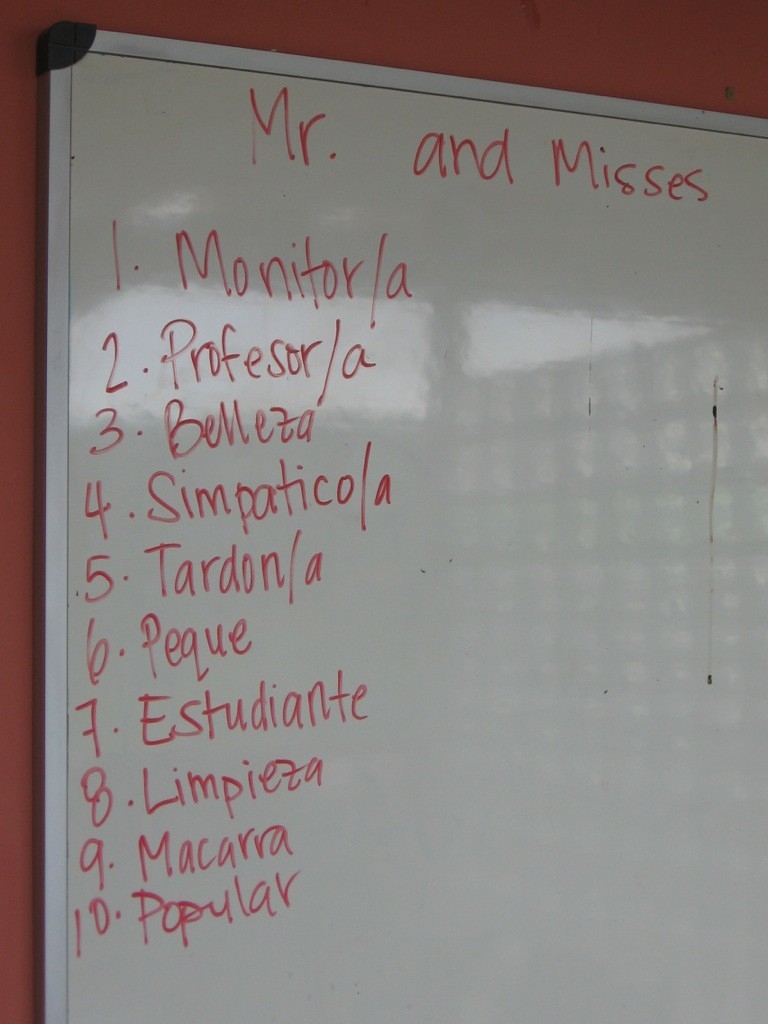 Mr. and Misses
1. Monitor/a
2. Profesor/a
3. Belleza
4. Simpatico/a
5. Tardon/a
6. Peque
7. Estudiante
8. Limpieza
9. Macarra
10. Popular